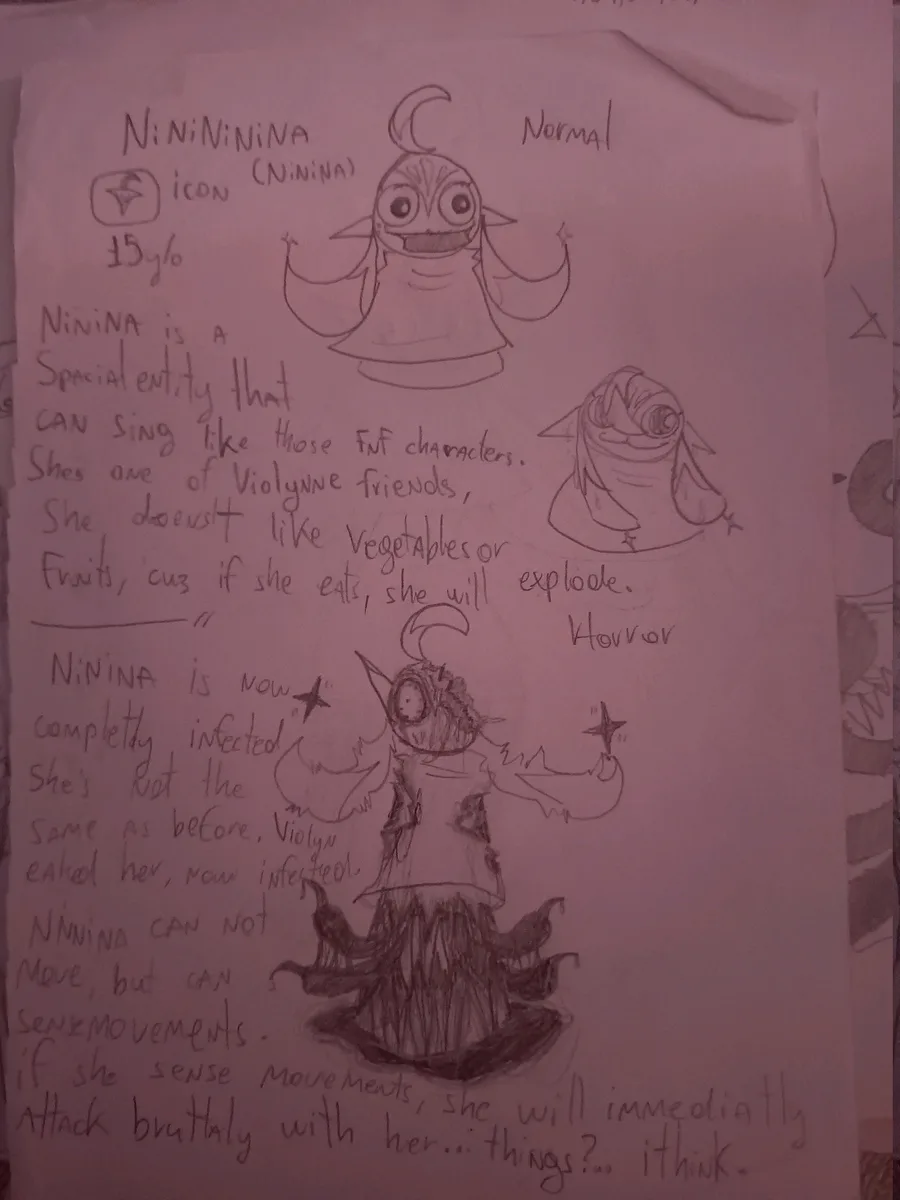 NiNiNiNiNA
Normal
icon
(NiNiNA)
15y/o
NiNiNA is A
Spacial entity that
CAN Sing like those FNF characters.
Shes one of Violynne friends,
She doensit like vegetables or
Fruits, cuz if she eats, she will explode.
Horror
NiNiNA is Now
completly infected
She's Not the
same as before. Violyn
eaked her, now infected.
NiNiNA CAN NOT
Move, but CAN
senzmovements.
if she sense movements, she will immediatly
Attack bruttaly with her... things?... ithink.